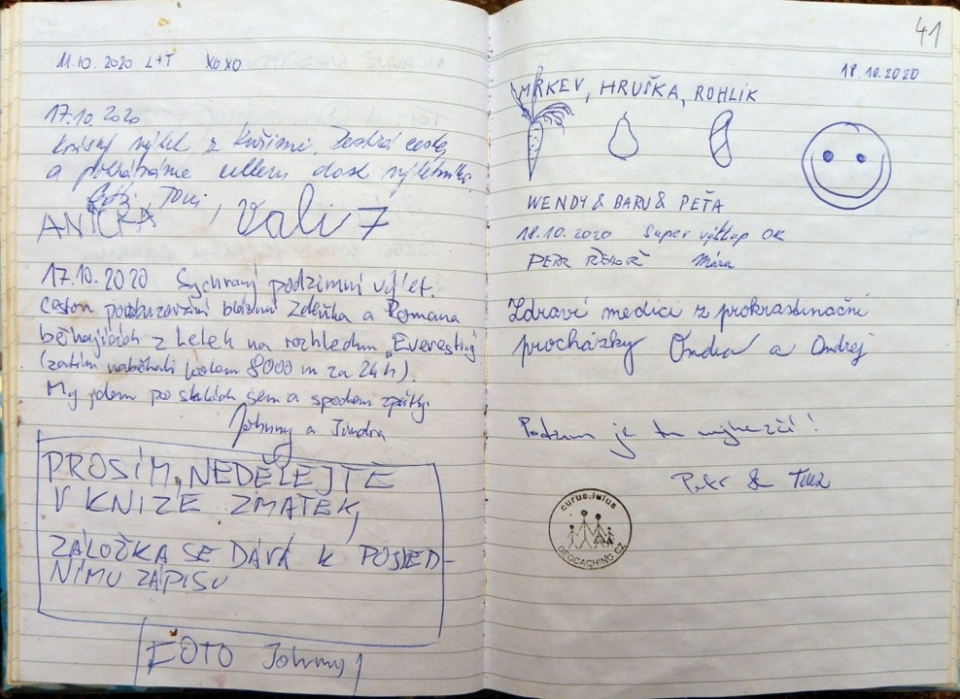 11.10.2020 L+T XOXO
17.10.2020
Krásný výlet z Kuřimi. Dobrá cesta
a potkáváme celkem dost výletníků.
Toni,
ANIČKA, Vali 7
17.10.2020 Sychravý podzimní výlet.
Cestou povzbuzování bláznů Zdeňka a Romana
běhajících z Lelek na rozhlednu „Everesting"
(zatím naběhali kolem 8000 m za 24h).
My jdem po skalách sem a spodem zpátky.
Johnny a Jindra
PROSÍM, NEDĚLEJTE
V KNIZE ZMATEK,
ZÁLOŽKA SE DÁVÁ K POSLED-
NÍMU ZÁPISU
FOTO Johnny
41
18.10.2020
MRKEV, HRUŠKA, ROHLÍK
WENDY & BARU & PEŤA
18.10.2020 Super výstup OK
PETR Mára
Zdraví medici z prokrastinační
procházky Ondra a Ondřej
Podzim je tu nejhezčí!
Petr &
curus.iulus
GEOCACHING.CZ